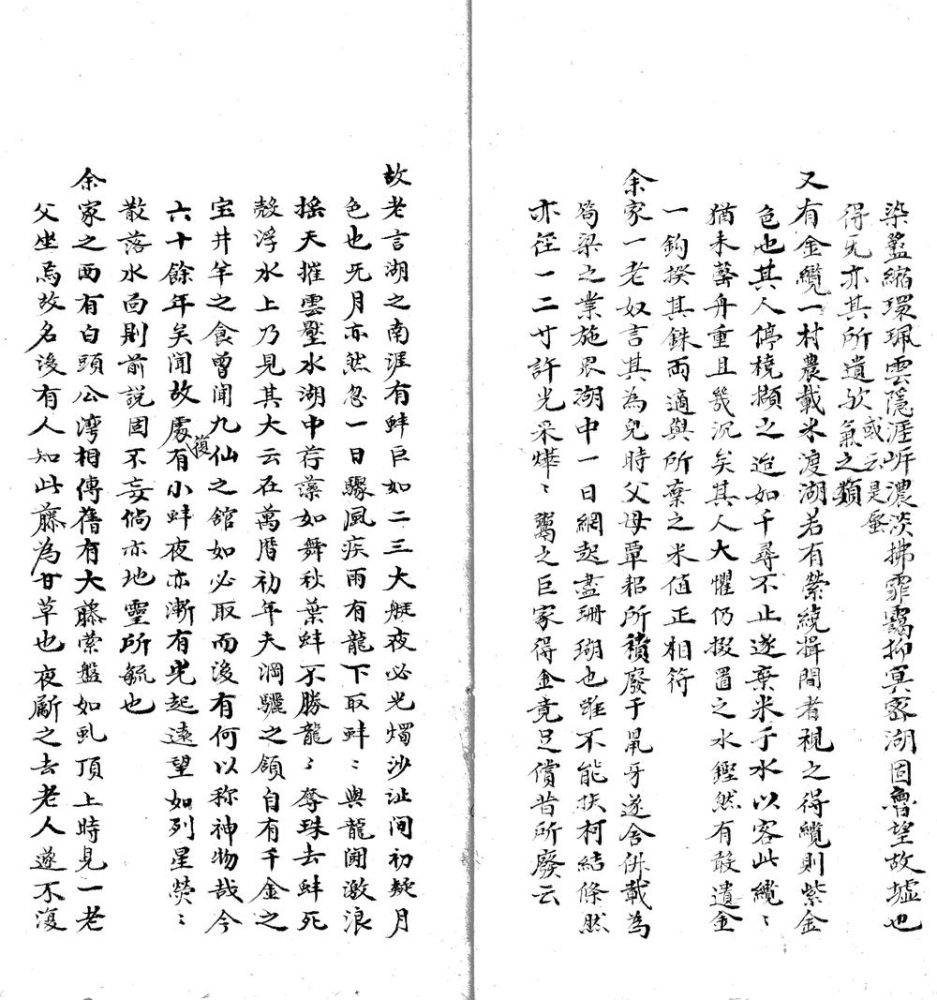 染藍縮環珮雲隱涯㟁濃淡拂霏靄抑冥密湖固魯望故墟也
得旡亦其所遺欤氣之類
或云是蜃
又有金纜一村農載米渡湖若有縈繞揖間者視之得纜則紫金
色也其人停橈擷之迨如千尋不止遂棄米于水以容此纜〻
猶未罄舟重且幾沉矣其人大懼仍掇置之水鏗然有敢遺金
一鈎揆其銖兩適與所棄之米值正相符
余家一老奴言其為兒時父母覃耜所積廢于鼠牙遂舍佛載為
笱梁之業施罛湖中一日網起盡珊瑚也雖不能扶柯結條然
亦徑一二寸許光采燁〻鬻之巨家得金竟足償昔所廢云
故老言湖之南涯有蚌巨如二三大艇夜必光燭沙沚间初疑月
色也旡月亦然忽一日驟風疾雨有龍下取蚌〻與龍鬪激浪
摇天摧雲壓水湖中荇藻如舞秋葉蚌不勝龍〻奪珠去蚌死
殼浮水上乃見其大云在萬曆初年夫淵驪之頷自有千金之
宝井竿之食曾聞九仙之舘如必取而後有何以称神物哉今
六十餘年矣聞故處復有小蚌夜亦漸有光起遠望如列星熒〻
散落水面則前説固不妄倘亦地靈所毓也
余家之西有白頭公湾相傳舊有大藤縈盤如虬頂上時見一老
父坐焉故名後有人知此藤為甘草也夜斸之去老人遂不復